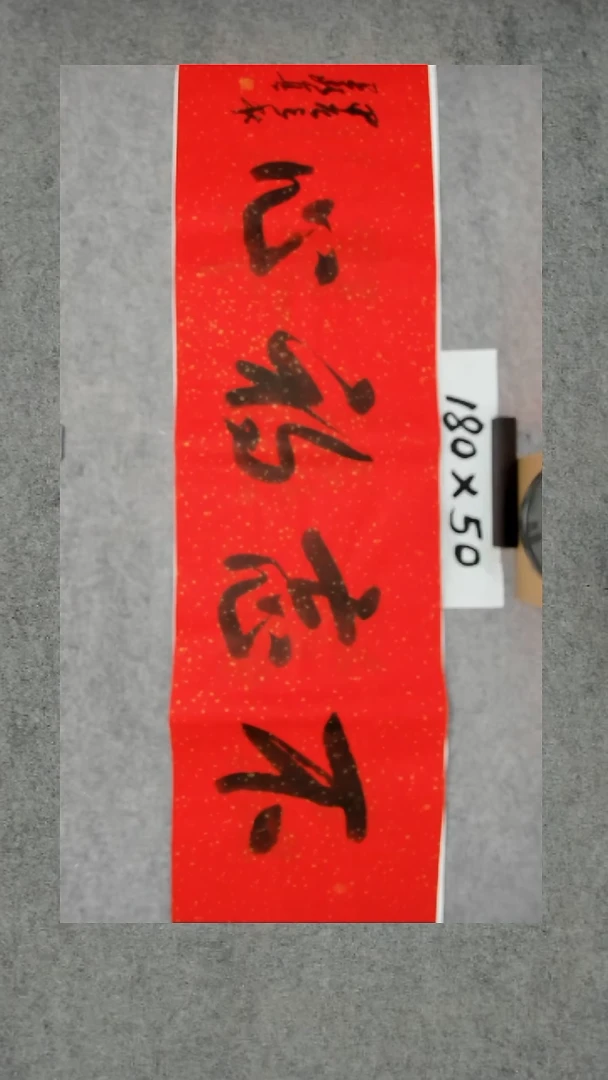 不忘初心
180×50